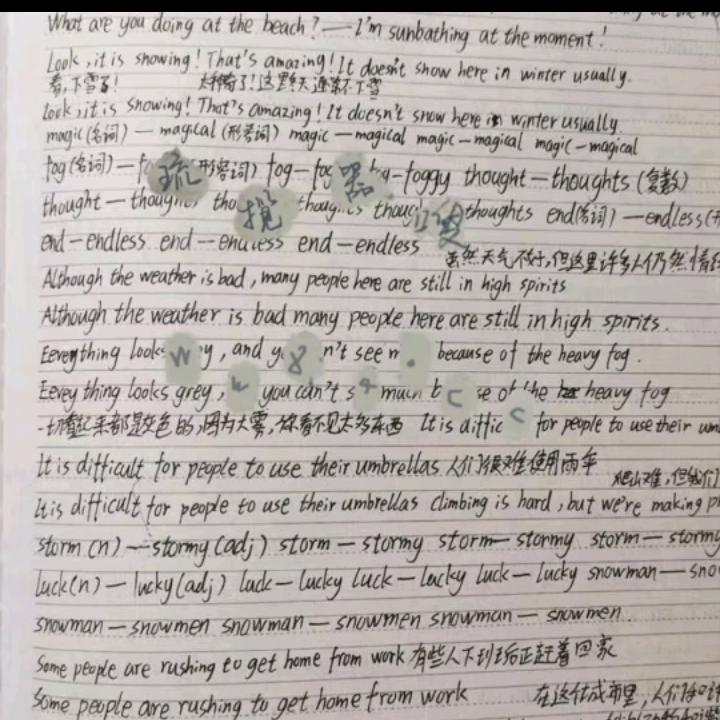 What are you doing at the beach? — I'm sunbathing at the moment!
Look, it is snowing! That's amazing! It doesn't snow here in winter usually.
看,下雪了! 太神奇了!这里冬天通常不下雪
look, it is snowing! That's amazing! It doesn't snow here in winter usually.
magic(名词) — magical (形容词) magic — magical magic — magical magic — magical
fog(名词) — 形容词) fog — foggy thought — thoughts (复数)
thought — thoughts thoughts thoughts end(名词) — endless
end — endless end — endless end — endless 虽然天气不好,但这里许多人仍然情
Although the weather is bad, many people here are still in high spirits
Although the weather is bad many people here are still in high spirits.
Eeverything looks y, and y n't see because of the heavy fog.
Eevey thing looks grey, you can't much of the heavy fog
一切看起来都是灰色的,因为大雾,你看不见太多东西 It is diffic for people to use their um
It is difficult for people to use their umbrellas 人们很难使用雨伞
爬山难,但我们
It is difficult for people to use their umbrellas climbing is hard, but we're making
storm (n) — stormy (adj) storm — stormy storm — stormy storm — stormy
luck(n) — lucky(adj) luck — lucky luck — lucky luck — lucky snowman — sno
snowman — snowmen snowman — snowmen snowman — snowmen
Some people are rushing to get home from work 有些人下班后正赶着回家
Some people are rushing to get home from work 在这个城市里,人们